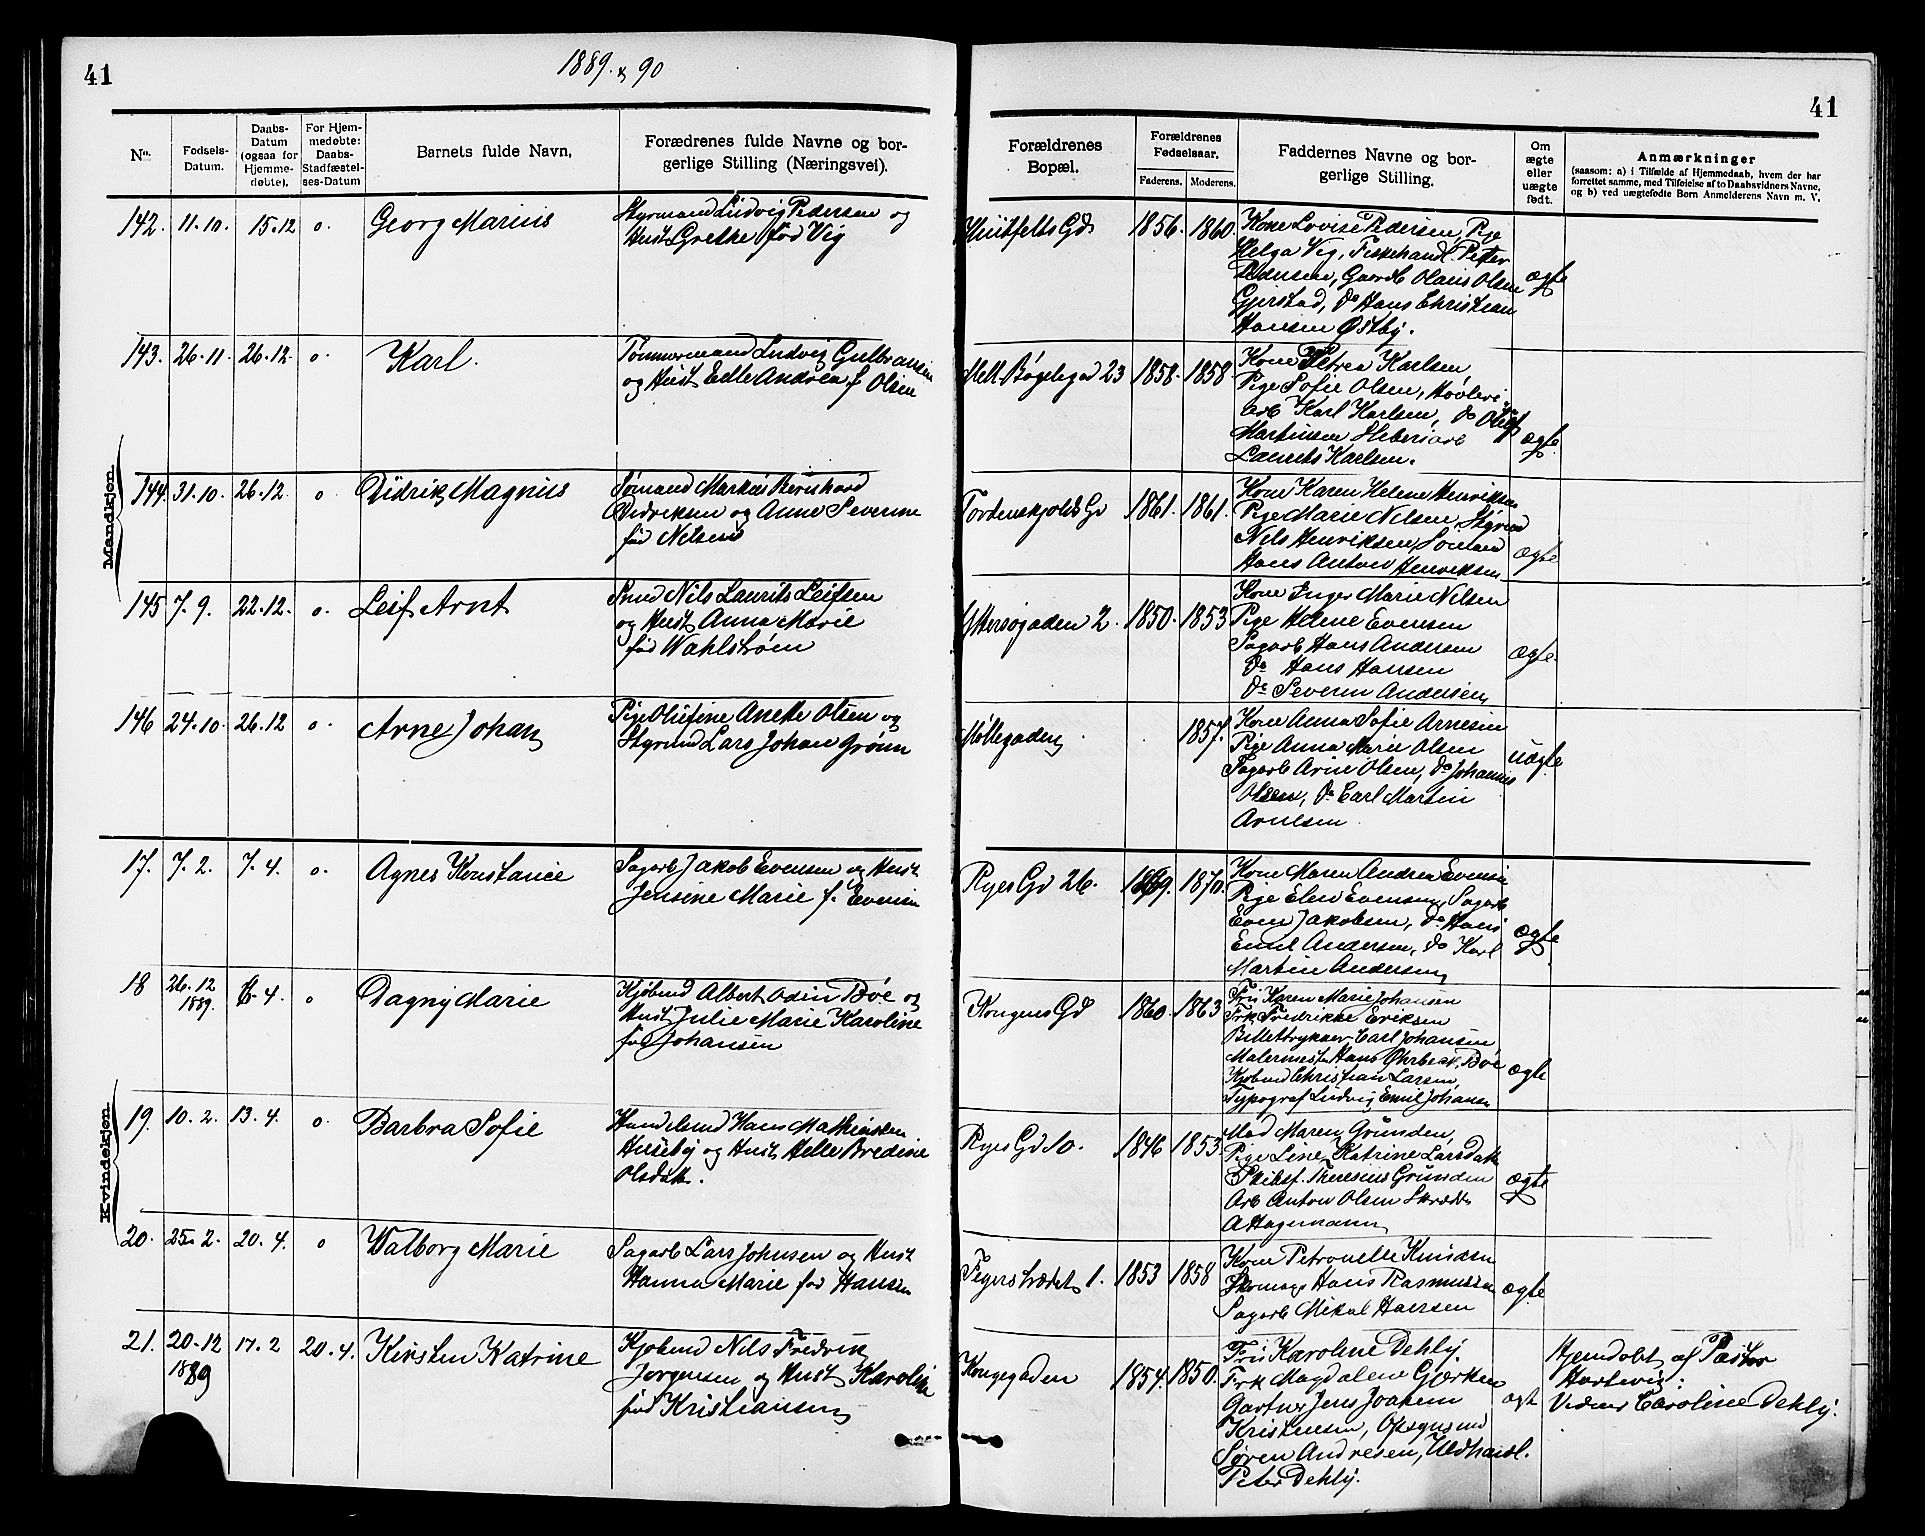 41
1889 & 90
No.
Fødsels-
Datum.
Daabs-
Datum
(ogsaa for
Hjemme-
døbte).
For Hjem-
medøbte:
Daabs-
Stadfæstel-
ses-Datum
Barnets fulde Navn.
Forældrenes fulde Navne og bor-
gerlige Stilling (Næringsvei).
Mandkjøn
142. 11.10. 15.12 o. Georg Marius
Styrmand Ludvig Pedersen og
Hust Grethe fød Vig
143. 26.11. 26.12. o. Karl.
Tømmermand Ludvig Gulbransen
og Hust Edle Andrea f. Olsen
144. 31.10. 26.12 o Didrik Magnus
Sømand Markus Bernhard
Didriksen og Anne Severine
fød Nelsen
145 7.9. 22.12. o. Leif Arnt
Smed Nils Laurits Leifsen
og Hust Anna Marie
fød Wahlstrøm
146 24.10. 26.12 o. Arne Johan
Pige Olufine Anette Olsen og
Styrmd Lars Johan Grønn
Kvindekjøn
17. 7.2. 7.4. o. Agnes Konstance
Sagarb Jakob Evensen og Hust
Jensine Marie f. Evensen
18 26.12 1889. 6.4. o Dagny Marie
Kjøbmd Albert Odin Bøe og
Hust Julie Marie Karoline
fød Johansen
19. 10.2. 13.4. o. Barbra Sofie
Handelsmd Hans Mathiassen
Huseby og Hust Helle Bredine
Olsdatt.
20. 25.2. 20.4. o Walborg Marie
Sagarb Lars Johnsen og Hust
Hanna Marie fød Hansen
21. 20.12 1889 17.2 20.4. Kirsten Katrine
Kjøbmd Nils Fredrik
Jørgensen og Hust Karoline
fød Kristiansen
41
Forældrenes
Bopæl.
Forældrenes
Fødselsaar.
Faderens. Moderens.
Faddernes Navne og bor-
gerlige Stilling.
Om
ægte
eller
uægte
født.
Anmærkninger
(saasom: a) i Tilfælde af Hjemmedaab, hvem der har
forrettet samme, med Tilføielse af to Daabsvidners Navne,
og b) ved uægtefødte Børn Anmelderens Navn m. V.
Huitfelts Gd 1856. 1860.
Kone Lovise Pedersen, Pige
Helga Vig, Fiskehandl. Petter
Pedersen, Gaardb Olaus Olsen
Gjerstad, Do Hans Christian
Hansen Østby.
ægte
Mell. Bøgelegad 23 1858. 1858.
Kone Petrea Karlsen
Pige Sofie Olsen, Høvleri
arb Karl Karlsen, Do Oluf
Martinsen
Laurits Karlsen.
ægte
Tordenskjolds Gd 1861. 1861.
Kone Karen Helene Henriksen
Pige Marie Nelsen, Styrmd
Nils Henriksen, Sømand
Hans Anton Henriksen
ægte
Yttersøgaden 2. 1850. 1853
Kone Inger Marie Nilsen
Pige Helene Evensen
Sagarb Hans Andersen
Do Hans Hansen
Do Severin Andersen
ægte.
Møllegaden . . 1857.
Kone Anna Sofie Arnesen
Pige Anna Marie Olsen
Sagarb Arne Olsen, Do Johannes
Olsen, Do Carl Martin
Arnesen
uægte
Ryes Gd 26. 1869. 1870.
Kone Maren Andrea Evensen
Pige Elen Evensen, Sagarb
Even Jakobsen, Do Hans
Emil Andersen, Do Karl
Martin Andersen
ægte
Kongens Gd 1860. 1863
Fru Karen Marie Johansen
Frk Fredrikke Eriksen
Billettrykker Carl Johansen
Malermester Hans Ohrbeck Bøe
Kjøbmd Christian Larsen,
Typograf Ludvig Emil Johansen
ægte
Ryes Gd 10. 1846 1853.
Mad Maren Grunden,
Pige Line Katrine Larsdatt
Skibsf. Theresius Grunden
Arb Anton Olsen Skrædder
A Hagemann
ægte
Figerstrædet 1. 1853 1858
Kone Petronelle Knudsen
Skomag Hans Rasmussen
Sagarb Mikal Hansen
ægte
Kongegaden 1854. 1850.
Fru Karoline Dehly.
Frk Magdalene Gjerken
Gartner Jens Joakim
Kristensen, Opsynsmd
Søren Andresen, Uldhandl.
Peter Dehly.
ægt
Hjemdøbt af Pastor
Hartvig.
Vidner Caroline Dehly.